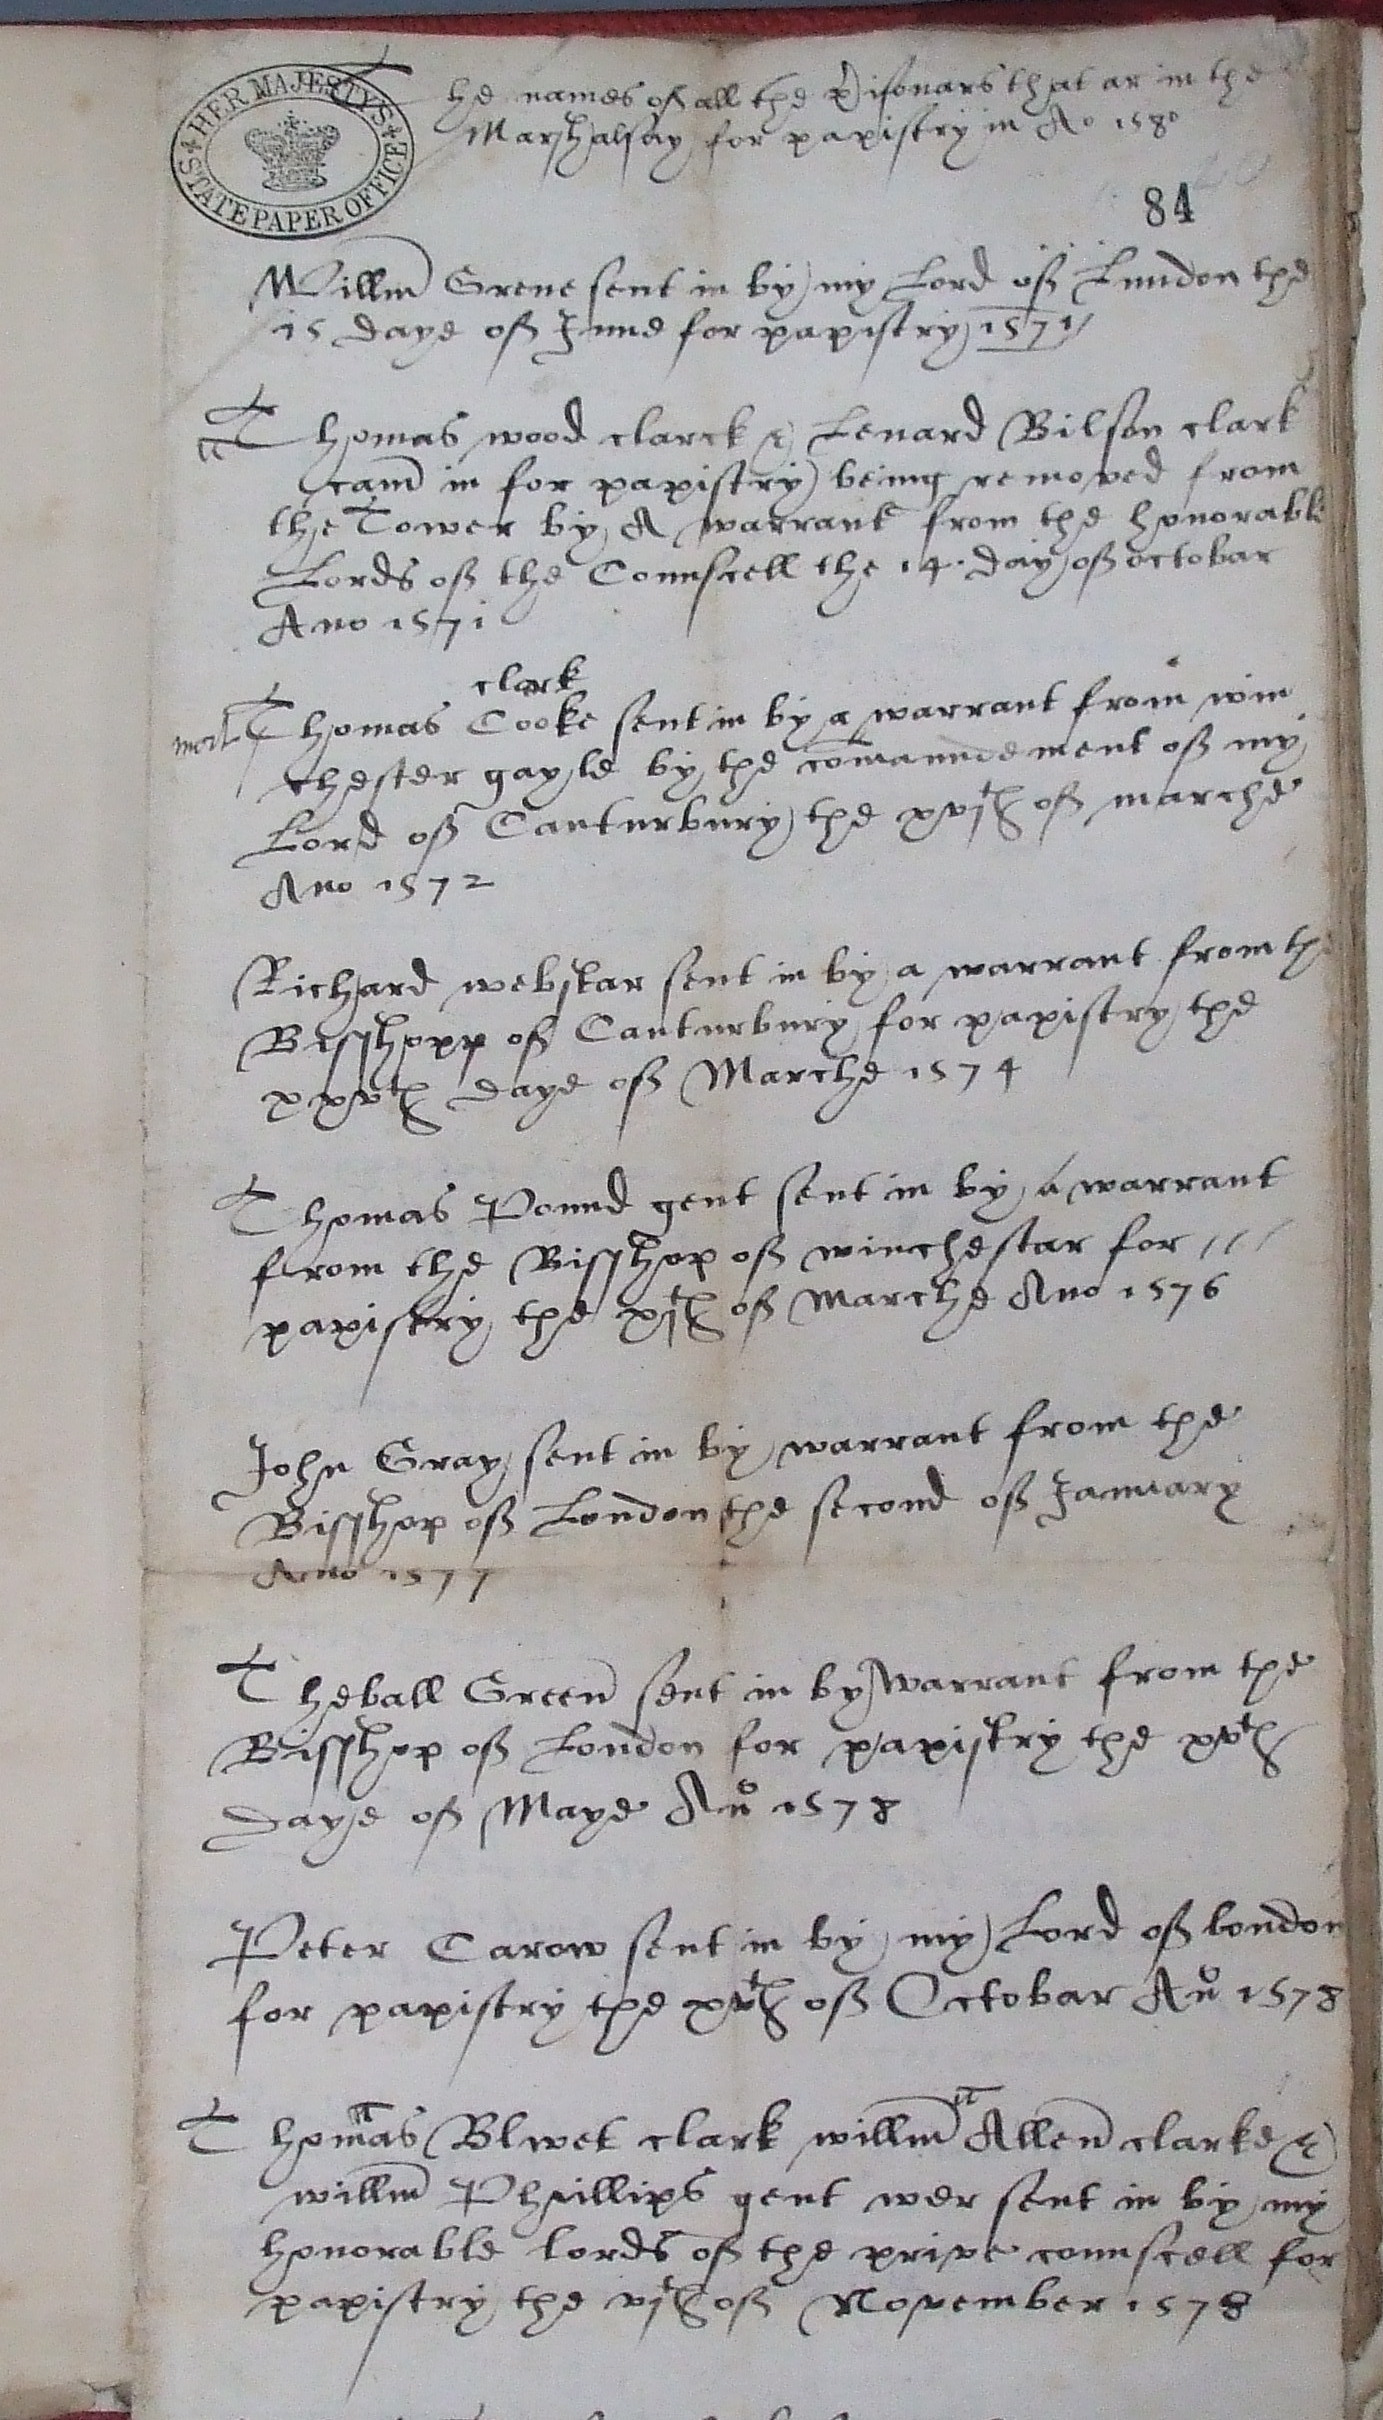 HER MAJESTYS
STATE PAPER OFFICE
The names of all the prisonars that ar in the
Marshalsay for papistry in Ao 1580
84
Willm Grene sent in by my Lord off Lundon the
15 daye off June for papistry 1571
Thomas wood clarck & Lenard Bilson clark
cam in for papistry being removed from
the Tower by A warrant from the honorable
Lords off the Counscell the 14 day off octobar
Ano 1571
clark
Thomas Cooke sent in by a warrant from win
chester gayle by the comaundement off my
Lord off Canturbury the xvjth off marche
Ano 1572
Richard webstar sent in by a warrant from the
Bisshopp off Canturbury for papistry the
xxvth daye off Marche 1574
Thomas Pound gent sent in by a warrant
from the Bisshop off winchestar for
papistry the xjth off Marche Ano 1576
John Gray sent in by warrant from the
Bisshop off London the second off January
Ano 1577
Theball Green sent in by warrant from the
Bisshop off London for papistry the xvth
daye off Maye Ano 1578
Peter Carow sent in by my Lord off london
for papistry the xvth off Octobar Ano 1578
Thomas Blwet clark willm Allen clarke &
willm Phillips gent wer sent in by my
honorable lords off the prive counscell for
papistry the vjth off November 1578